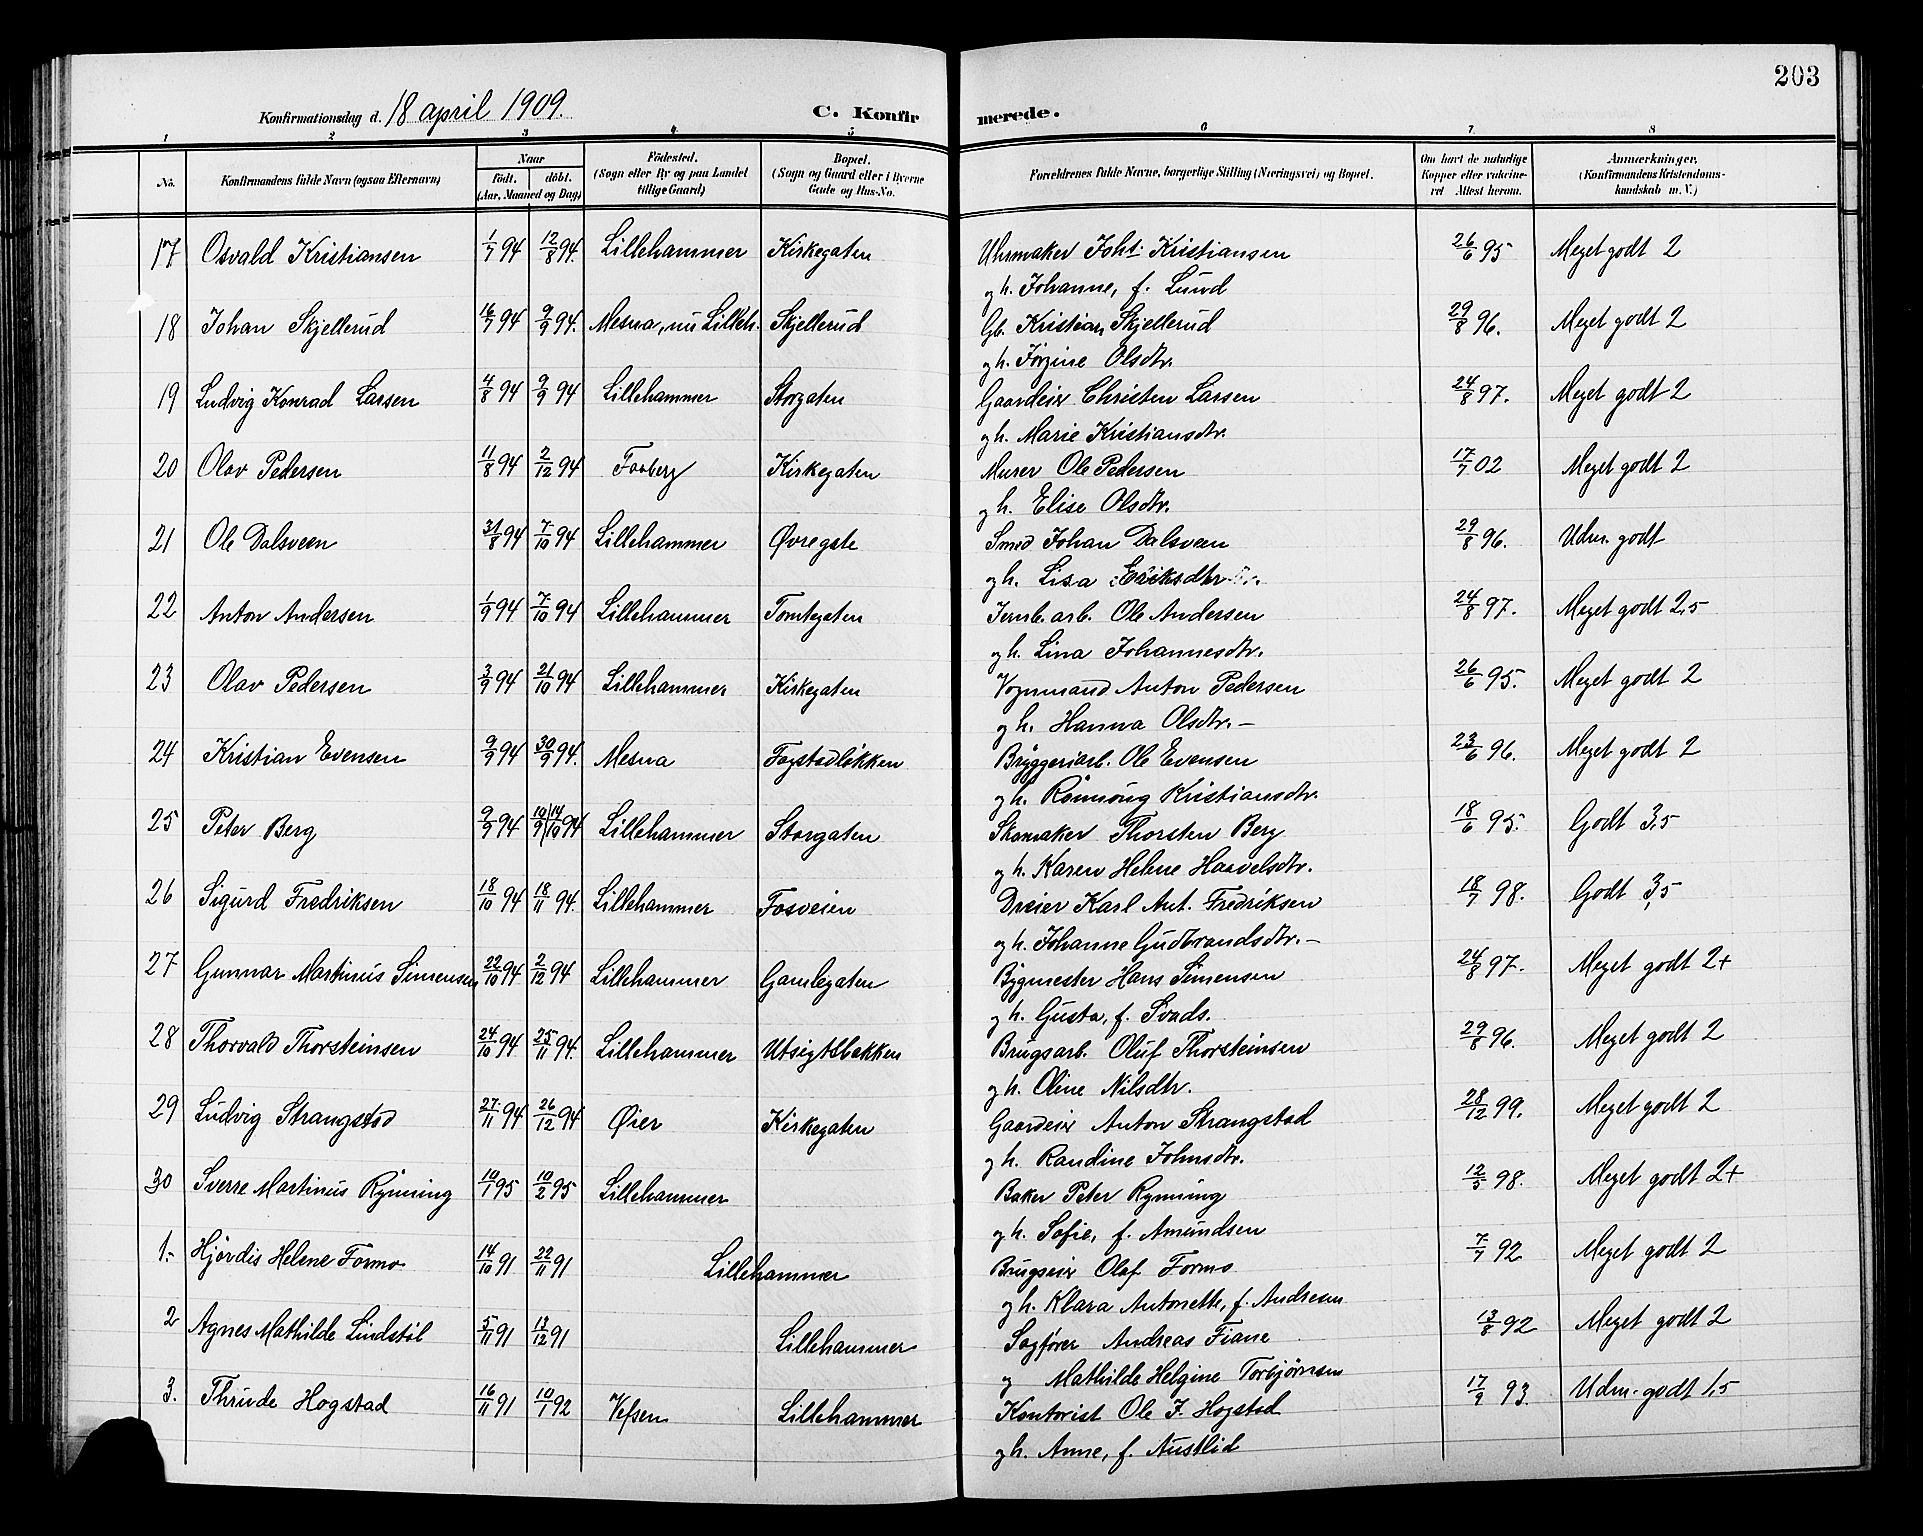 203
Konfirmationsdag d. 18 april 1909. C. Konfirmerede.
1 2 3 4 5 6 7 8
No. Konfirmandens fulde Navn (ogsaa Efternavn) Naar født. døbt. (Aar, Maaned og Dag) Fødested. (Sogn eller By og paa Landet tillige Gaard) Bopæl. (Sogn og Gaard eller i Byerne Gade og Hus-No. Forældrenes fulde Navne, borgerlige Stilling (Næringsvei) og Bopæl. Om havt de naturlige Kopper eller vaccineret Attest herom. Anmærkninger. (Konfirmandens Kristendomskundskab m. V.)
17 Osvald Kristiansen 1/7 94 12/8 94. Lillehammer Kirkegaten Uhrmaker Joht. Kristiansen 26/6 95 Meget godt 2
gh. Johanne, f. Lund
18 Johan Skjellerud 16/7 94 9/9 94. Mesna, nu Lilleh. Skjellerud Gb. Kristian Skjellerud 29/8 96. Meget godt 2
gh. Jørgine Olsdtr.
19 Ludvig Konrad Larsen 4/8 94 9/9 94 Lillehammer Storgaten Gaardeier Christen Larsen 24/8 97. Meget godt 2
gh. Marie Kristiansdtr.
20 Olav Pedersen 11/8 94 2/12 94 Faaberg Kirkegaten Murer Ole Pedersen 17/7 02 Meget godt 2
gh. Elise Olsdtr.
21 Ole Dalsveen 31/8 94 7/10 94 Lillehammer Øvregate Smed Johan Dalsveen 29/8 96. Udm. godt
gh. Lisa Eriksdtr
22 Anton Andersen 1/9 94 7/10 94 Lillehammer Tomtegaten Jernb. arb. Ole Andersen 24/8 97. Meget godt 2,5
gh. Lina Johannesdtr.
23 Olav Pedersen 3/9 94 21/10 94 Lillehammer Kirkegaten Vognmand Anton Pedersen 26/6 95. Meget godt 2
gh. Hanna Olsdtr. –
24 Kristian Evensen 9/9 94 30/9 94. Mesna Fagstadløkken Bryggeriarb. Ole Evensen 23/6 96. Meget godt 2
gh. Rønnoug Kristiansdtr.
25 Peter Berg 9/9 94 10/9 | 14/10 94 Lillehammer Storgaten Skomaker Thorsten Berg 18/6 95. Godt 3,5
gh. Karen Helene Haavelsdtr.
26 Sigurd Fredriksen 18/10 94 18/11 94. Lillehammer Fosveien Dreier Karl Ant. Fredriksen 18/7 98. Godt 3,5
gh. Johanne Gudbrandsdtr. –
27 Gunnar Martinus Simensen 22/10 94 2/12 94 Lillehammer Gamlegaten Bygmester Hans Simensen 24/8 97. Meget godt 2+
gh. Gusta, f. Svads.
28 Thorvald Thorsteinsen 24/10 94 25/11 94. Lillehammer Utsigtsbakken Brugsarb. Oluf Thorsteinsen 29/8 96. Meget godt 2
gh. Oline Nilsdtr.
29 Ludvig Strangstad 27/11 94 26/12 94 Øier Kirkegaten Gaardeier Anton Strangstad 28/12 99. Meget godt 2
gh. Randine Johnsdtr.
30 Sverre Martinus Rynning 10/1 95 10/2 95 Lillehammer Baker Peter Rynning 12/5 98. Meget godt 2+
gh. Sofie, f. Amundsen
1. Hjørdis Helene Formo 14/10 91 22/11 91 Lillehammer Brugseier Olaf Formo 7/7 92 Meget godt 2
gh. Klara Antonette, f. Andresen
2 Agnes Mathilde Lindstøl 5/11 91 13/12 91 Lillehammer Sagfører Andreas Fiane 13/8 92 Meget godt 2
og Mathilde Helgine Torbjørnsen
3. Thrude Hogstad 16/11 91 10/1 92 Vefsen Lillehammer Kontorist Ole J. Hogstad 17/9 93. Udm. godt 1,5
gh. Anne, f. Austlid